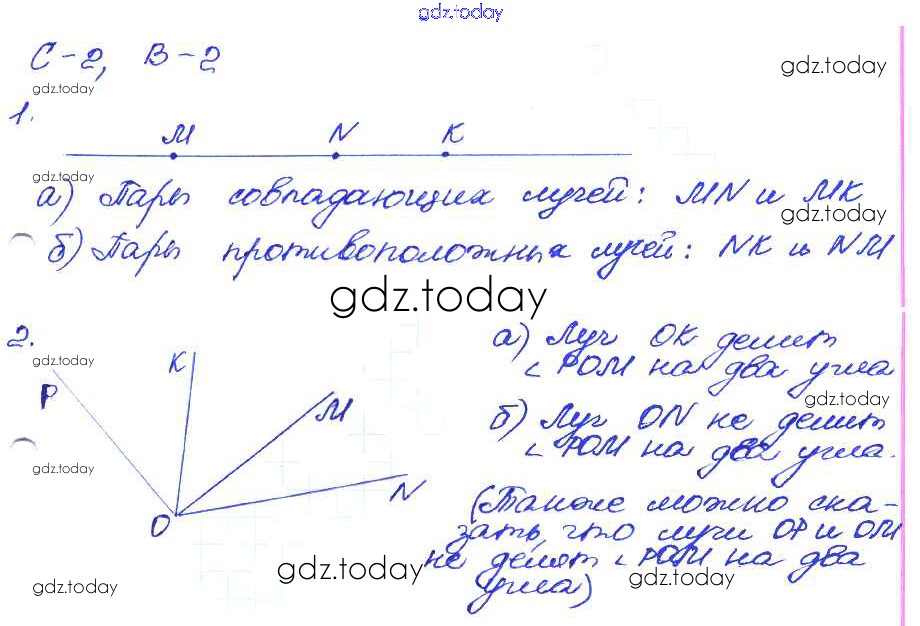 gdz.today
С-2, В-2
gdz.today
gdz.today
1.
M N K
gdz.today
а) Пары совпадающих лучей: MN и MK
gdz.today
б) Пары противоположных лучей: NK и NM
gdz.today
2.
gdz.today
P
K
M
N
O
gdz.today
а) Луч OK делит
∠ POM на два угла
gdz.today
б) Луч ON не делит
∠ POM на два угла.
(Также можно ска-
зать, что лучи OP и OM
не делят ∠ POM на два
угла)
gdz.today
gdz.today
gdz.today